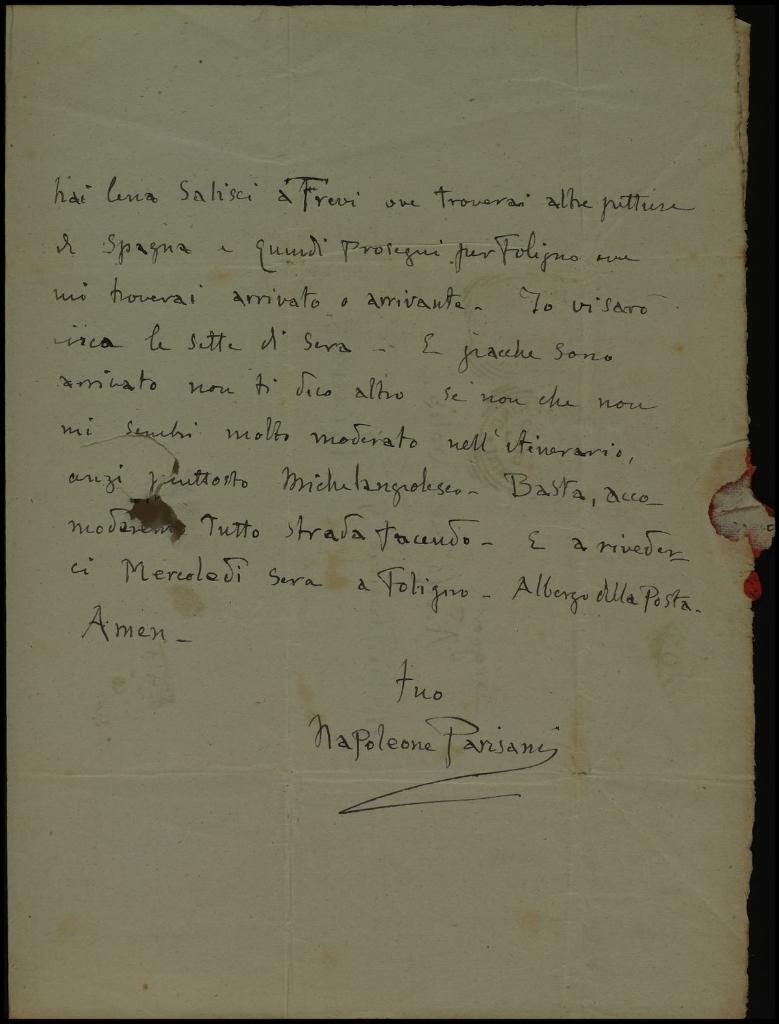 hai lena Salisci a Trevi ove troverai altre pitture
di Spagna e quindi Prosegui per Foligno ove
mi troverai arrivato o arrivante - Io vi sarò
circa le sette di Sera - E giacchè Sono
arrivato non ti dico altro se non che non
mi sembri molto moderato nell'itinerario,
anzi piuttosto Michelangiolesco - Basta, acco-
moderemo Tutto strada facendo - E a riveder-
ci Mercoledì Sera a Foligno - Albergo della Posta.
Amen -
tuo
Napoleone Parisani